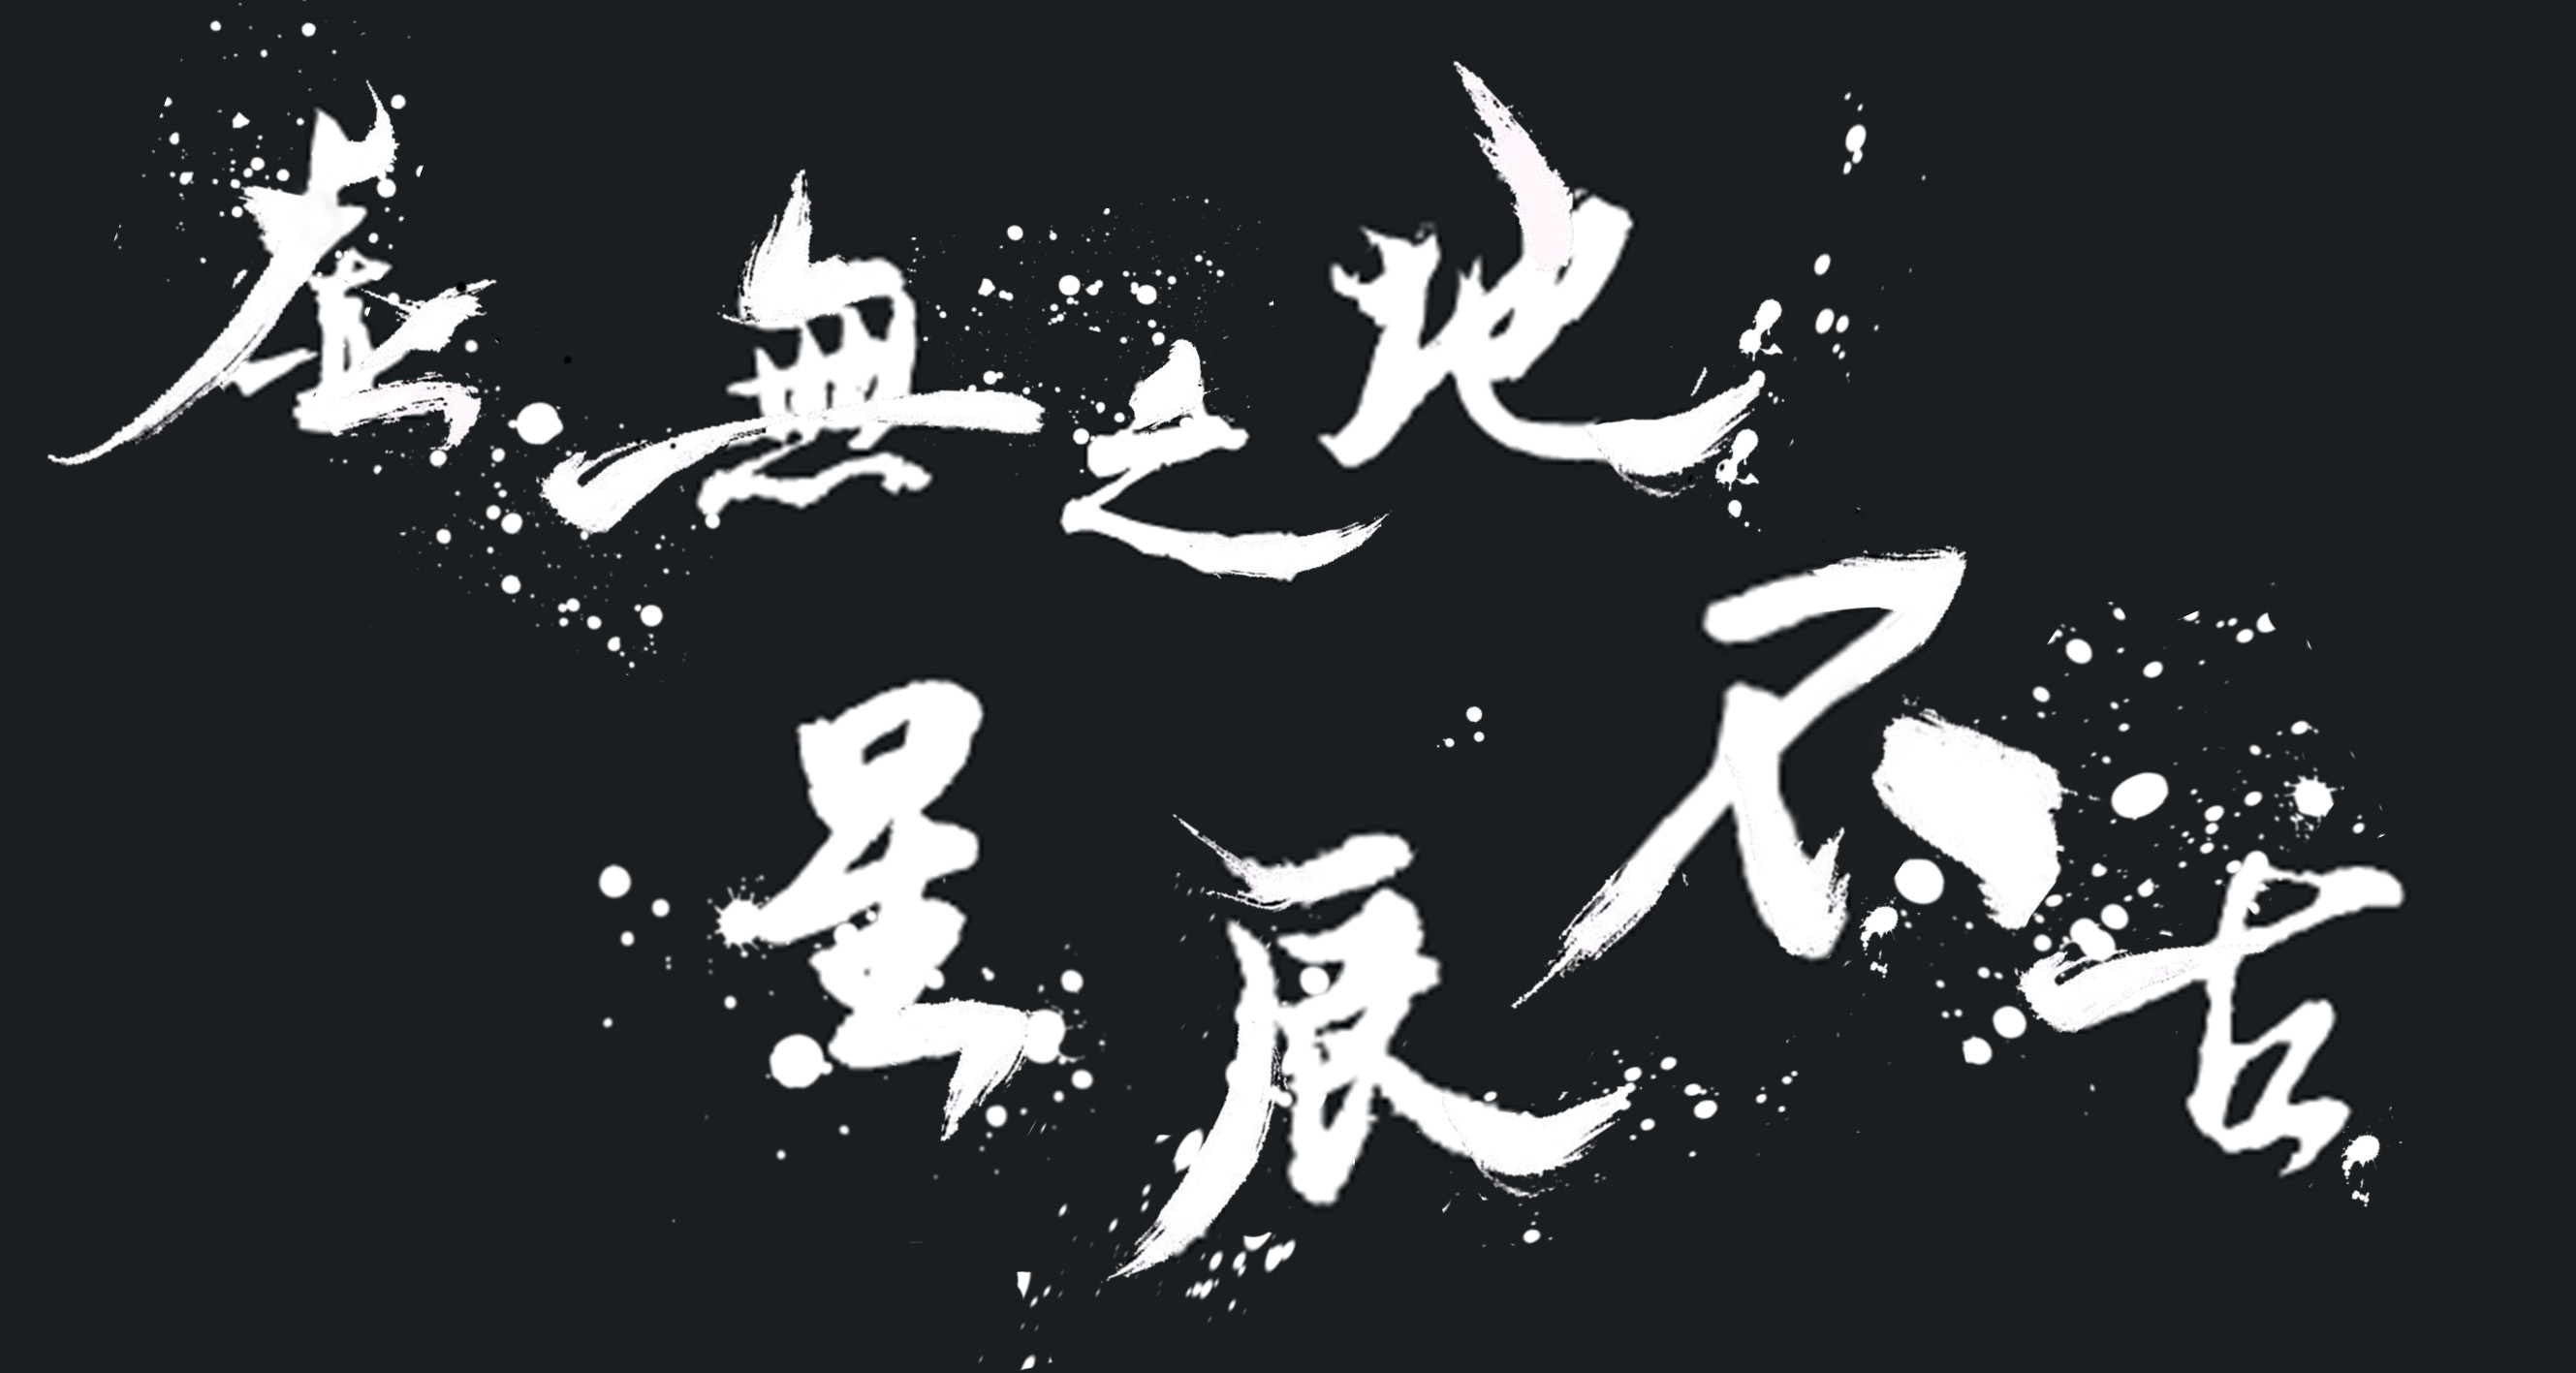 虚無之地
星辰不古